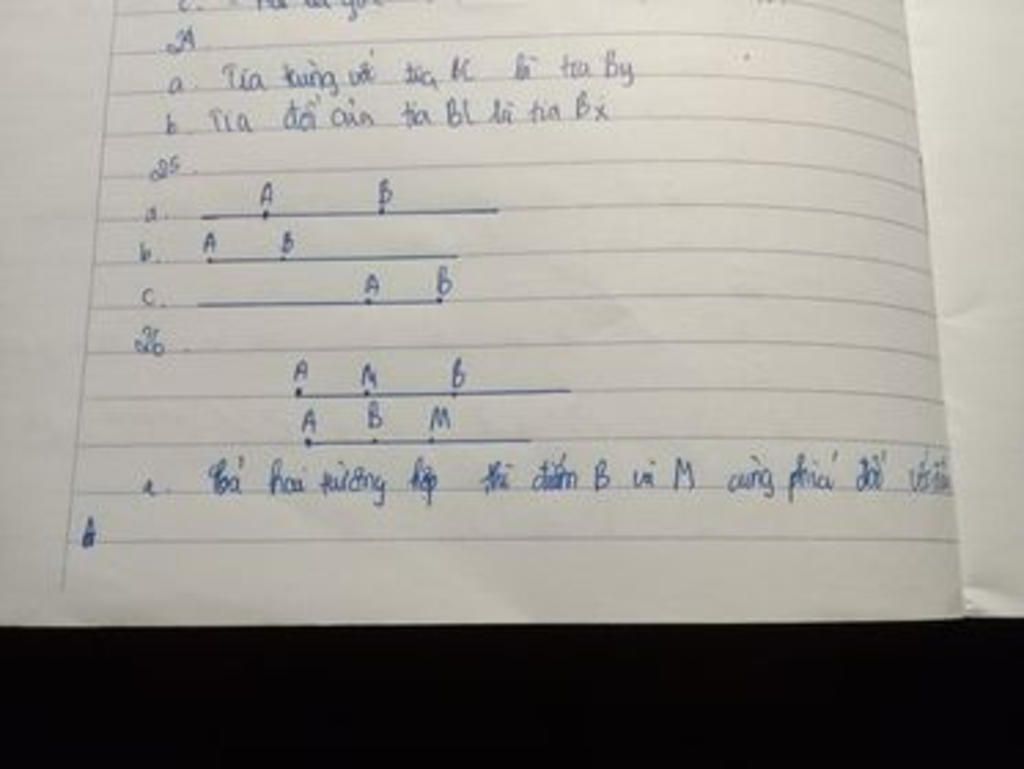 24
a. Tia trùng với tia BC là tia By
b. Tia đối của tia BC là tia Bx
25.
a. A B
b. A B
c. A B
26.
A M B
A B M
a. Cả hai trường hợp thì điểm B và M cùng phía đối với
A